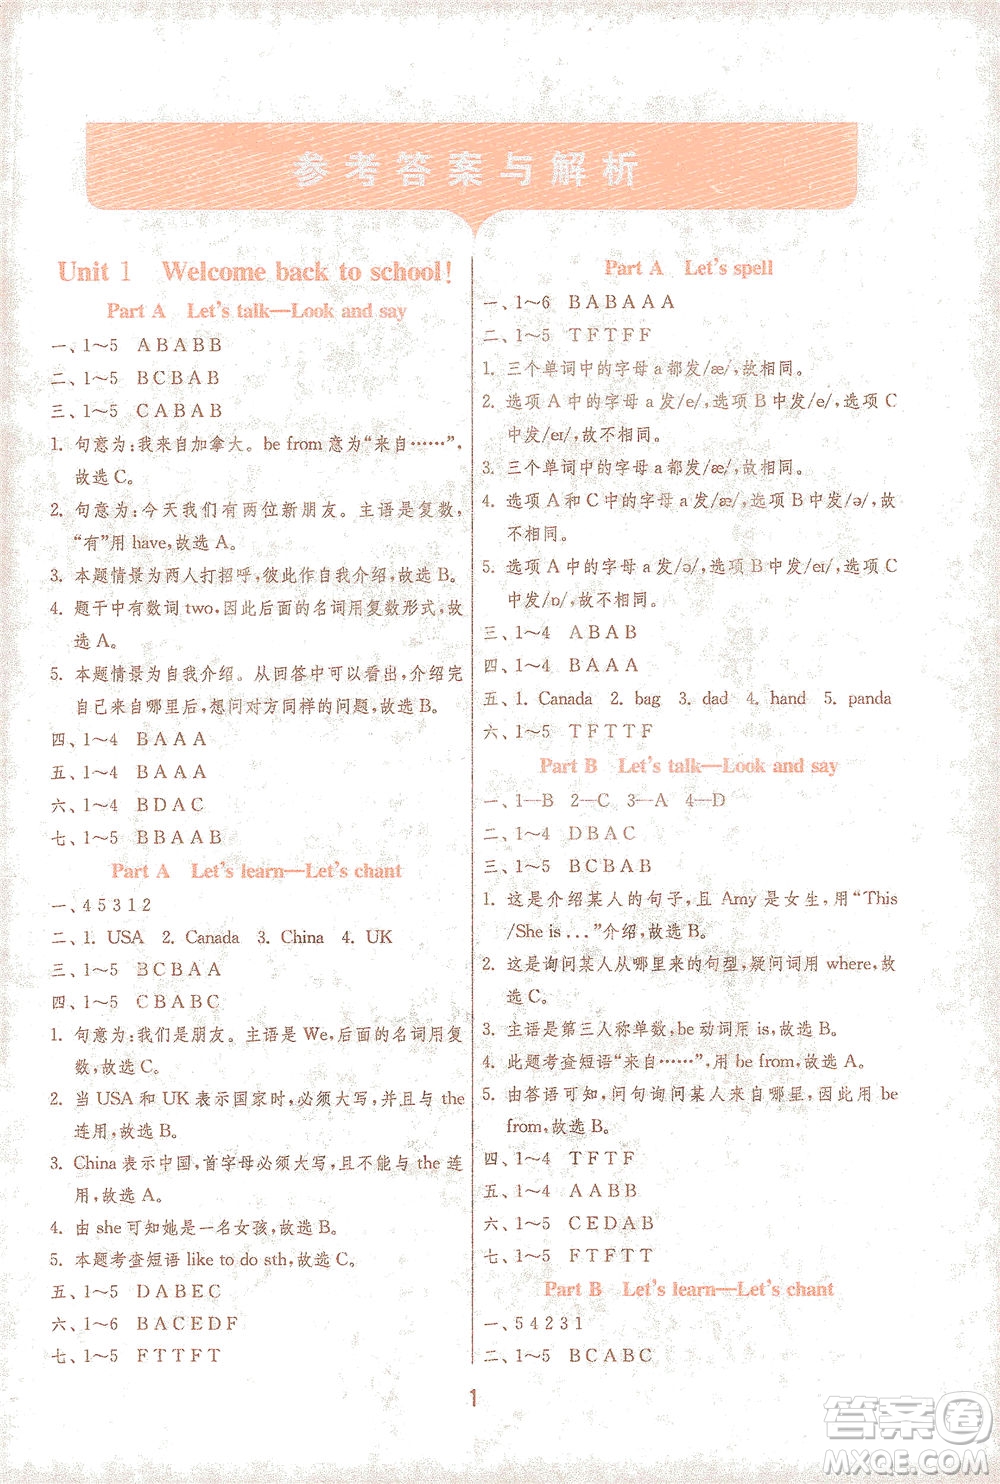 参考答案与解析
Unit 1 Welcome back to school!
Part A Let's talk—Look and say
一、1～5 A B A B B
二、1～5 B C B A B
三、1～5 C A B A B
1. 句意为:我来自加拿大。be from 意为“来自……”,
故选 C。
2. 句意为:今天我们有两位新朋友。主语是复数,
“有”用 have,故选 A。
3. 本题情景为两人打招呼,彼此作自我介绍,故选 B。
4. 题干中有数词 two,因此后面的名词用复数形式,故
选 A。
5. 本题情景为自我介绍。从回答中可以看出,介绍完
自己来自哪里后,想问对方同样的问题,故选 B。
四、1～4 B A A A
五、1～4 B A A B
六、1～4 B D A C
七、1～5 B B A A B
Part A Let's learn—Let's chant
一、4 5 3 1 2
二、1. USA 2. Canada 3. China 4. UK
三、1～5 B C B A A
四、1～5 C B A B C
1. 句意为:我们是朋友。主语是 We,后面的名词用复
数,故选 C。
2. 当 USA 和 UK 表示国家时,必须大写,并与 the
连用,故选 B。
3. China 表示中国,首字母必须大写,且不能与 the 连
用,故选 A。
4. 由 she 可知她是一名女孩,故选 B。
5. 本题考查短语 like to do sth,故选 C。
五、1～5 D A B E C
六、1～6 B A C E D F
七、1～5 F T T F T
Part A Let's spell
一、1～6 B A B A A A
二、1～5 T F T F F
1. 三个单词中的字母 a 都发/æ/,故相同。
2. 选项 A 中的字母 a 发/e/,选项 B 中发/e/,选项 C
中发/eɪ/,故不相同。
3. 三个单词中的字母 a 都发/æ/,故相同。
4. 选项 A 和 C 中的字母 a 发/æ/,选项 B 中发/ə/,故
不相同。
5. 选项 A 中的字母 a 发/ə/,选项 B 中发/eɪ/,选项 C
中发/ɒ/,故不相同。
三、1～4 A B A B
四、1～4 B A A A
五、1. Canada 2. bag 3. dad 4. hand 5. panda
六、1～5 T F T T F
Part B Let's talk—Look and say
一、1—B 2—C 3—A 4—D
二、1～4 D B A C
三、1～5 B C B A B
1. 这是介绍某人的句子,且 Amy 是女生,用“This
/She is ...”介绍,故选 B。
2. 这是询问某人从哪里来的句型,疑问词用 where,故
选 C。
3. 主语是第三人称单数,be 动词用 is,故选 B。
4. 此题考查短语“来自……”,用 be from,故选 A。
5. 由答语可知,问句询问某人来自哪里,因此用 be
from,故选 B。
四、1～4 T F T F
五、1～4 A A B B
六、1～5 C E D A B
七、1～5 T F T F T
Part B Let's learn—Let's chant
一、5 4 2 3 1
二、1～5 B C A B C
1
答案卷
MXQE.COM